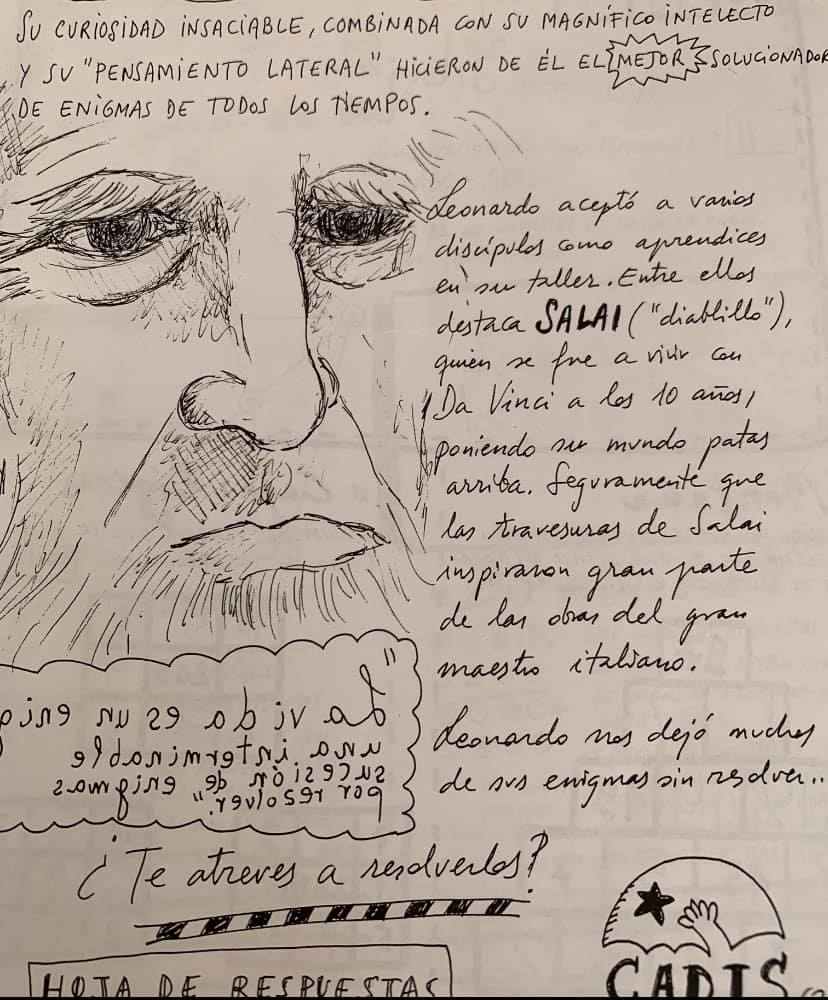 SU CURIOSIDAD INSACIABLE, COMBINADA CON SU MAGNÍFICO INTELECTO
Y SU "PENSAMIENTO LATERAL" HICIERON DE ÉL EL MEJOR SOLUCIONADOR
DE ENIGMAS DE TODOS LOS TIEMPOS.
Leonardo aceptó a varios
discípulos como aprendices
en su taller. Entre ellos
destaca SALAI ("diablillo"),
quien se fue a vivir con
Da Vinci a los 10 años,
poniendo su mundo patas
arriba. Seguramente que
las travesuras de Salai
inspiraron gran parte
de las obras del gran
maestro italiano.
Leonardo nos dejó muchos
de sus enigmas sin resolver..
"La vida es un enig
una interminable
sucesión de enigmas
por resolver."
¿Te atreves a resolverlos?
HOJA DE RESPUESTAS
CADIS